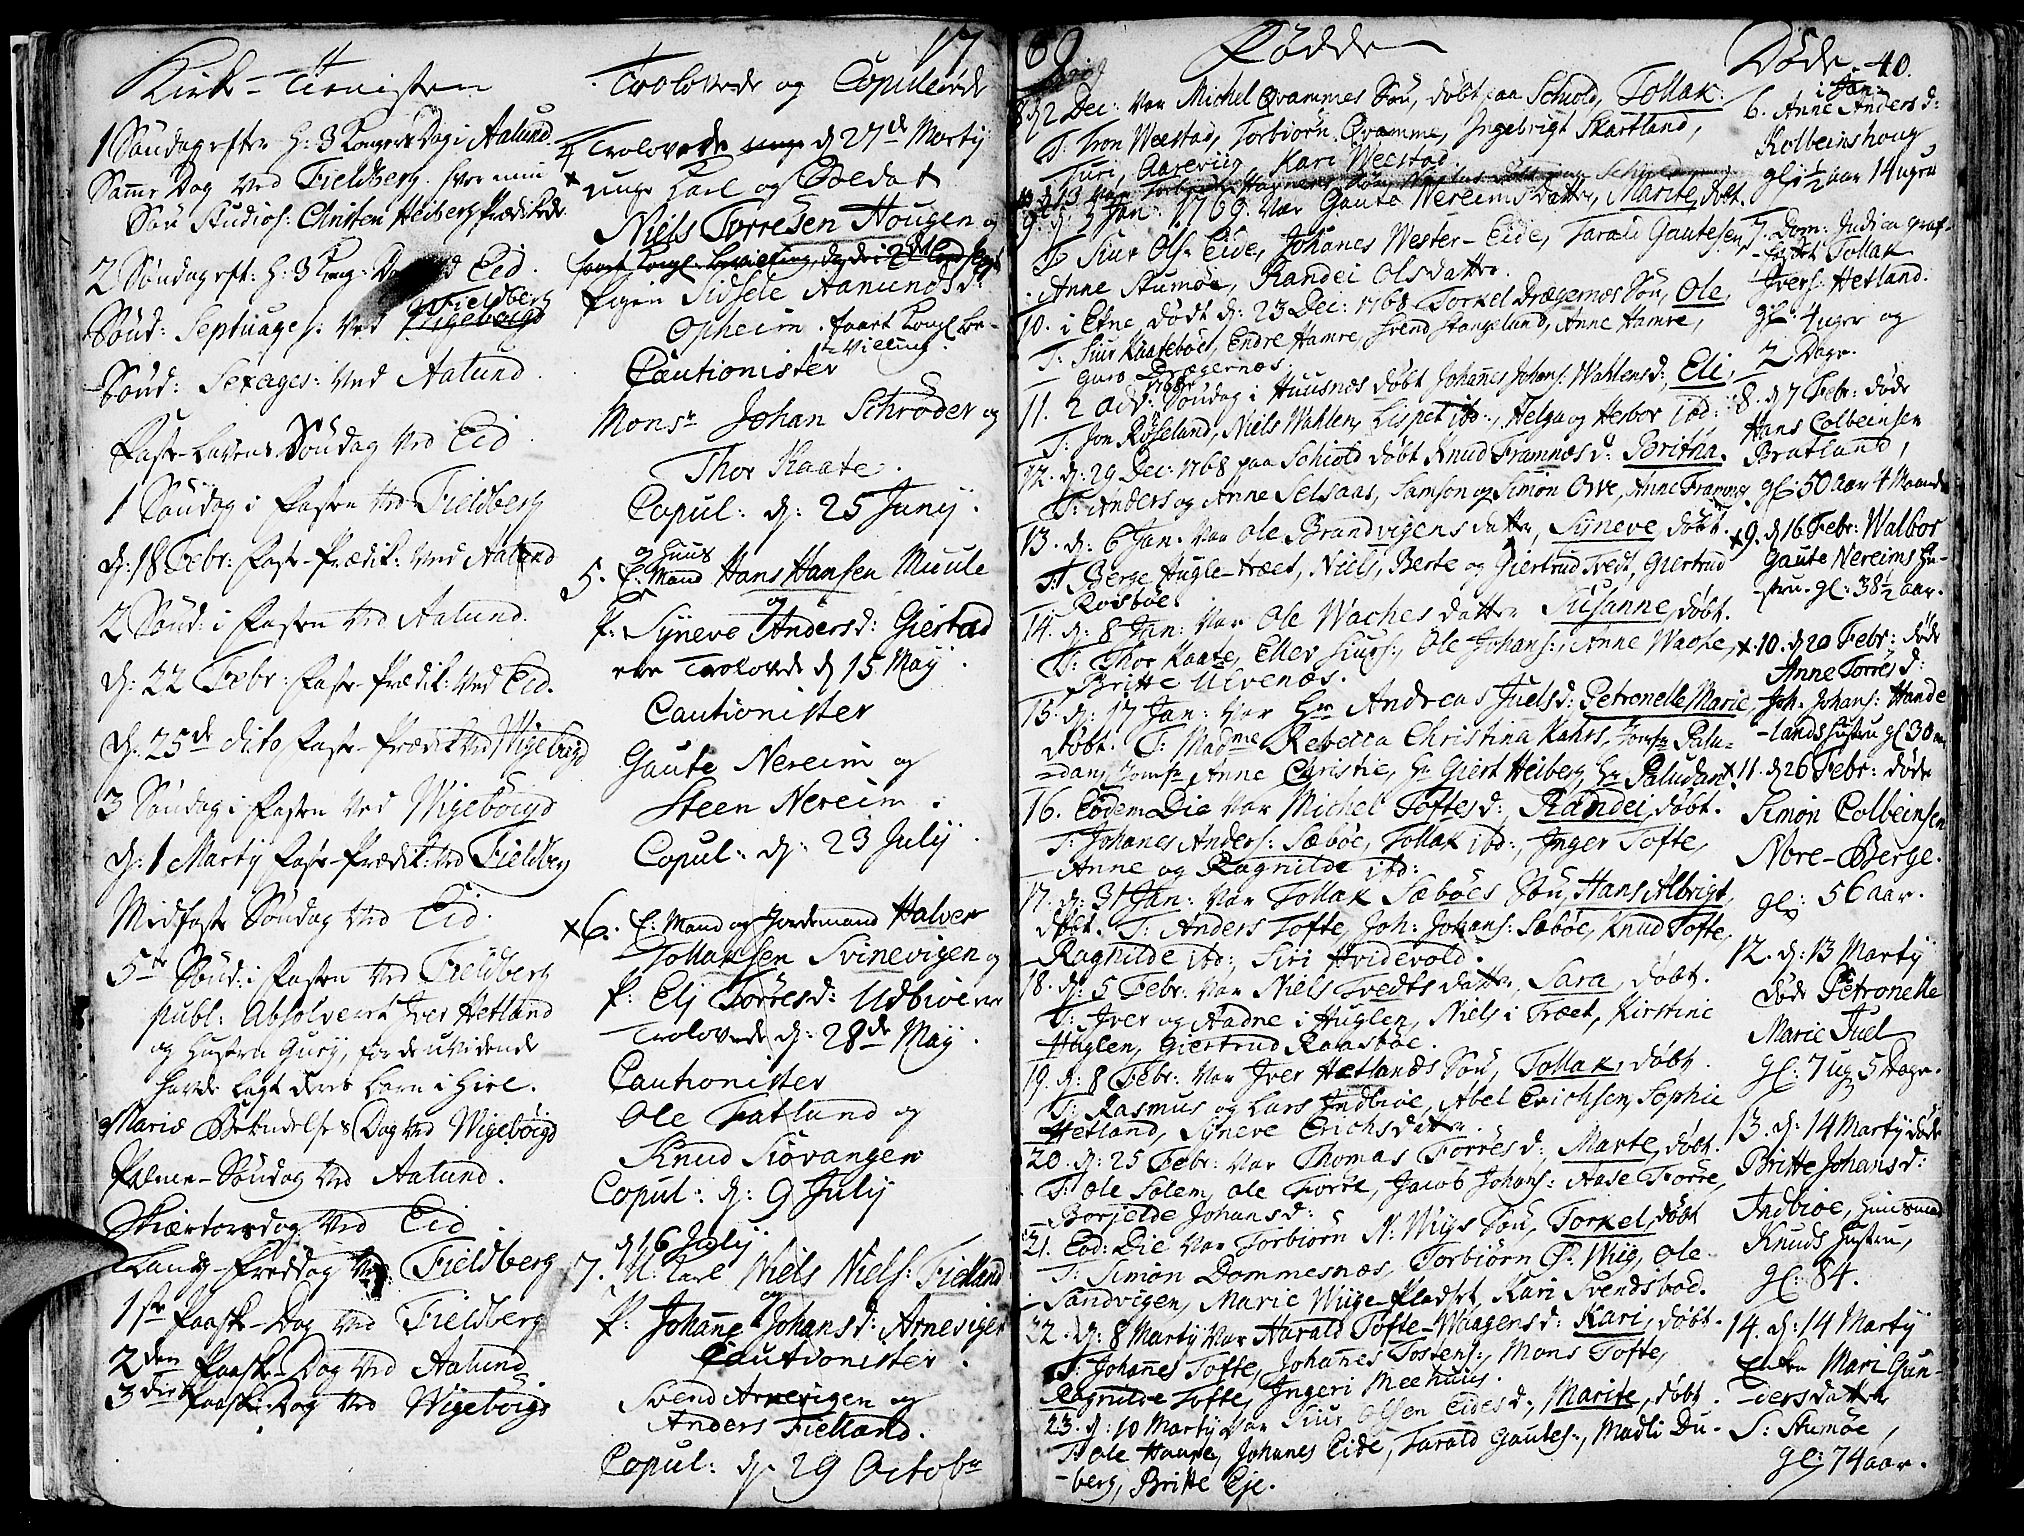 17
Kirk-Tienisten
1 Søndag efter H: 3 Kongers Dag i Aalund.
Samme Dag ved Fieldberg, hvor min
Søn Studios: Christen Heiberg Prædikede.
2 Søndag eft: H: 3 Kong: Dag ved Eid.
Sönd: Septuages: ved Fieldberg
Sönd: Sexages: ved Aalund.
Faste-Lavens Söndag ved Eid.
1 Söndag i Fasten ved Fieldberg
d: 18 Febr: Fast-Prædik: ved Aalund
2 Sönd: i Fasten ved Aalund.
d: 22 Febr: Fast-Prædik: ved Eid.
d: 25de dito Fast-Prædik: ved Wigebøigd
3 Søndag i Fasten ved Wigebøigd
d: 1 Martij Fast-Prædik: ved Fieldberg
Midfaste Søndag ved Eid.
5te Sönd: i Fasten ved Fieldberg
publ: Absolveret Iver Hetland
og Hustru Gurj, for de uvidende
havde lagt deres barn i hiel.
Mariæ Bebudelses Dag ved Wigebøigd
Palme-Søndag ved Aalund.
Skiærtorsdag ved Eid.
Lang-Fredag ved Fieldberg
1ste Paaske-Dag ved Fieldberg
2den Paaske-Dag ved Aalund
3die Paaske-Dag ved Wigebøigd
Trolovede og Copulerede
4 Trolovede d 27de Martij
x unge Karl og Soldat
Niels Torresen Hougen og
Pigen Sidsele Aamunds D:
Opheim. faaet Kongl. Be-
-villing.
Cautionister
Monsr Johan Schrøder og
Thor Kaate.
Copul: d: 25 Junij.
5. E: Mand og Huus Hans Hansen Muule
og
P: Syneve Andersd: Gierstad
ere Trolovede d 15 Maij.
Cautionister
Gaute Nereim og
Steen Nereim.
Copul: d: 23 Julij.
x6. E: Mand og Jordemand Halver
Tollaksen Svinevigen og
P: Elj Torresd: Udbiøe ere
Trolovede d: 28de Maij.
Cautionister
Ole Fatland og
Knud Siøvangen
Copul: d: 9 Julij
d 16 Julij.
7. U: Karl Niels Niels: Fielland
og
P: Johanne Johansd: Arneviger
Cautionister.
Svend Arnevigen og
Anders Fielland.
Copul: d: 29 Octobr
69
Fødde
8. d 2 Dec: var Michel Qvammes Søn, døbt paa Schiold, Tollak:
T: Tron Weestad, Torbiørn Qvamme, Ingebrigt Skartland,
Turi, Aareviig, Kari Weestad.
9. d. 3 Jan: 1769. var Gaute Nereims Datter, Marite, døbt.
T: Siur Ols: Eide, Johanes Wester-Eide, Tarald Gautesen,
Anne Stumøe, Randei Olsdatter.
10. i Etne, døbt d: 23 Dec: 1768 Torkel Drægernæs Søn, Ole,
T: Siur Kaatebøe, Endre Hamre, Svend Stangeland, Anne Hamre,
Guro Drægernæs.
11. 2 Adv: Søndag 1768 i Huusnæs døbt Johannes Johans: Wahlens d:, Eli,
T: Jon Røseland, Niels Wahlen, Lispet ibd:, Helga og Herbor ibd:
12. d: 29 Dec: 1768 paa Schiold døbt Knud Framnæs d: Britha.
T: Anders og Anne Selsaas, Samson og Simon Orve, Anne Framnes
13. d: 6 Jan: var Ole Brandvigens datter, Syneve, døbt.
T: Berge Hugle-træet, Niels, Berte og Giertrud Tvedt, Giertrud
Rosbøe.
14. d: 8 Jan: var Ole Waches datter Susanne, døbt.
T: Thor Kaate, Eller Siurs:, Ole Johans:, Anne Waage,
Britte Ulvenæs.
15. d: 17 Jan: var Hr Andreas Juels d: Petronelle Marie,
døbt. T: Madme Rebecca Christina Kahrs, Jomfr Palu-
-dan, Jomfr Anne Christie, Hr Giert Heiberg, Hr Paludan.
16. Eodem Die var Michel Toftes d: Randei, døbt.
T: Johanes Anders: Sæbøe, Tollak ibd:, Inger Tofte,
Anne og Ragnilde ibd:
17. d: 31 Jan: var Tollak Sæbøes Søn, Hans Albrigt,
døbt. T: Anders Tofte, Joh: Johans: Sæbøe, Knud Tofte,
Ragnilde ibd:, Siri Hvidevold.
18. d: 5 Febr: var Niels Tvedts datter, Sara, døbt.
T: Iver og Aadne i Huglen, Niels i Træet, Kirstine
Huglen, Giertrud Raasbøe.
19. d: 8 Febr: var Iver Hetlands Søn, Tollak, døbt.
T: Rasmus og Lars Indbiøe, Abel Erichsen, Sophie
Hetland, Syneve Erichsdatter.
20. d: 25 Febr: var Thomas Torres d: Marte, døbt.
T: Ole Solem, Ole Torre, Jacob Johans: Aase Torre,
Borjelde Johansd:
21. Eod: Die var Torbiørn N: Wiigs Søn, Torkel, døbt
T: Simon Dommesnæs, Torbiørn Ø: Wiig, Ole
Sandvigen, Marie Wiige-Pladset, Kari Svendsbøe.
22. d: 8 Martij var Harald Tofte-Waagens d: Kari, døbt.
T: Johanes Tofte, Johanes Tostens:, Mons Tofte,
Ragnilde Tofte, Ingeri Meehuus.
23. d: 10 Martij var Siur Olsen Eides d:, Marite, døbt.
T: Ole Haape, Johanes Eide, Tarald Gautes:, Madli Du-
-berg, Britte Eje.
Døde. 40.
i Jan:
6. Anne Anders d:
Kolbeinshoug
gl: ½ aar 14 uger
7. Dom: Judica graf-
-fæstet Tollak
Ivers: Hetland.
gl: 4 uger og
2 Dage.
8. d 7 Febr: døde
Hans Colbeinsen
Bratland,
gl: 50 aar 4 Maand
x9. d 16 Febr: Walbor
Gaute Nereims Hu-
-stru. gl: 38½ aar.
x.10. d 20 Febr: døde
Anne Torres d:
Joh: Johans: Hande
-lands Hustru gl 30 aar
x11. d 26 Febr: døde
Simon Colbeinsen
Nore-Berge.
gl: 56 aar.
12. d: 13 Martij
døde Petronelle
Marie Juel
gl: 7 ug 5 Dage.
13. d: 14 Martij døde
Britte Johansd:
Indbiøe, Huusmand
Knuds Hustru,
gl: 84.
14. d: 14 Martij
Enken Mari Gun-
-dersdatter
S: Stumøe,
gl: 74 aar.